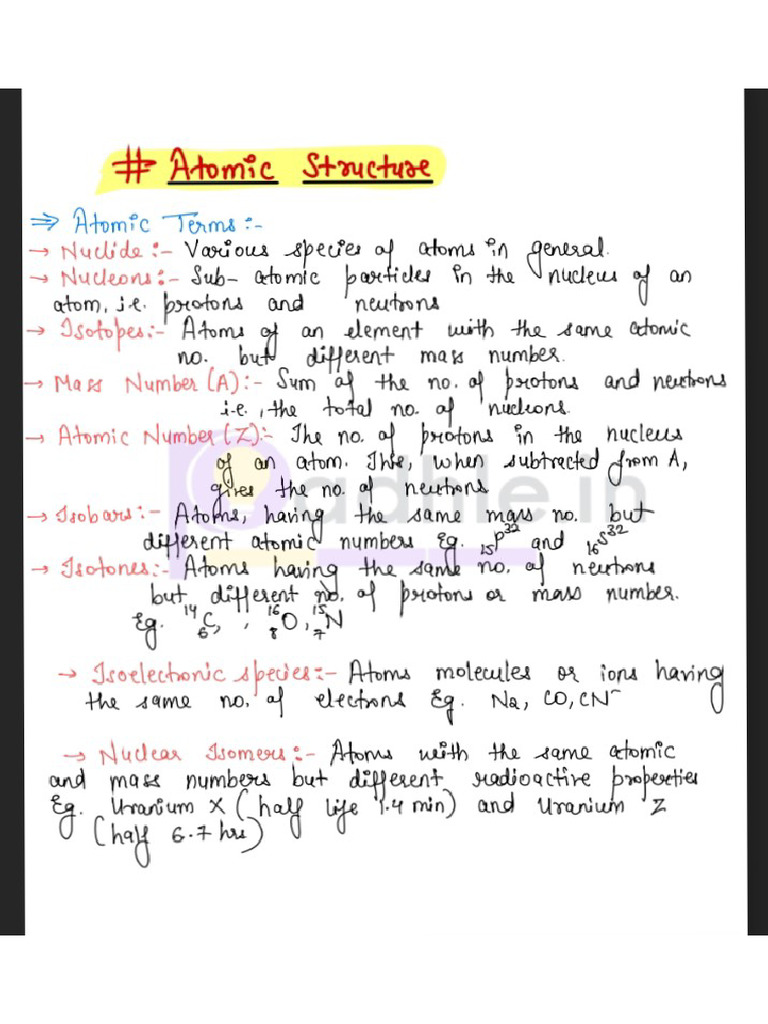 # Atomic Structure
⇒ Atomic Terms:-
→ Nuclide:- Various species of atoms in general.
→ Nucleons:- Sub-atomic particles in the nucleus of an
atom, i.e. protons and neutrons
→ Isotopes:- Atoms of an element with the same atomic
no. but different mass number.
→ Mass Number (A):- Sum of the no. of protons and neutrons
i.e., the total no. of nucleons.
→ Atomic Number (Z):- The no. of protons in the nucleus
of an atom. This, when subtracted from A,
gives the no. of neutrons
→ Isobars:- Atoms, having the same mass no. but
different atomic numbers Eg. ₁₅P³² and ₁₆S³²
→ Isotones:- Atoms having the same no. of neutrons
but different no. of protons or mass number.
Eg. ¹⁴₆C, , ¹⁶₈O, ¹⁵₇N
→ Isoelectronic species:- Atoms molecules or ions having
the same no. of electrons Eg. N₂, CO, CN⁻
→ Nuclear Isomers:- Atoms with the same atomic
and mass numbers but different radioactive properties
Eg. Uranium X (half life 1.4 min) and Uranium Z
(half 6.7 hrs)
adhle.in